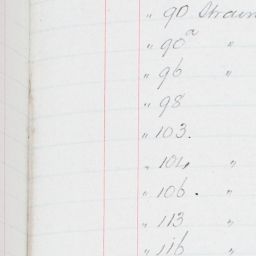 " 90 Strain
" 90a "
" 96 "
" 98
" 103.
" 104 "
" 106. "
" 113 "
" 116 "